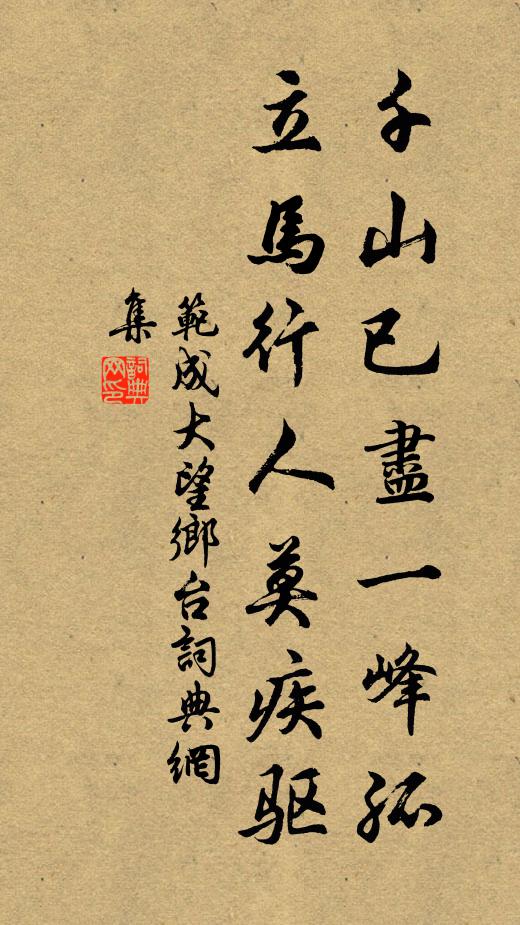 千山已盡一峰孤
立馬行人莫疾驱
範成大望鄉台詞典網
集
詞典网印